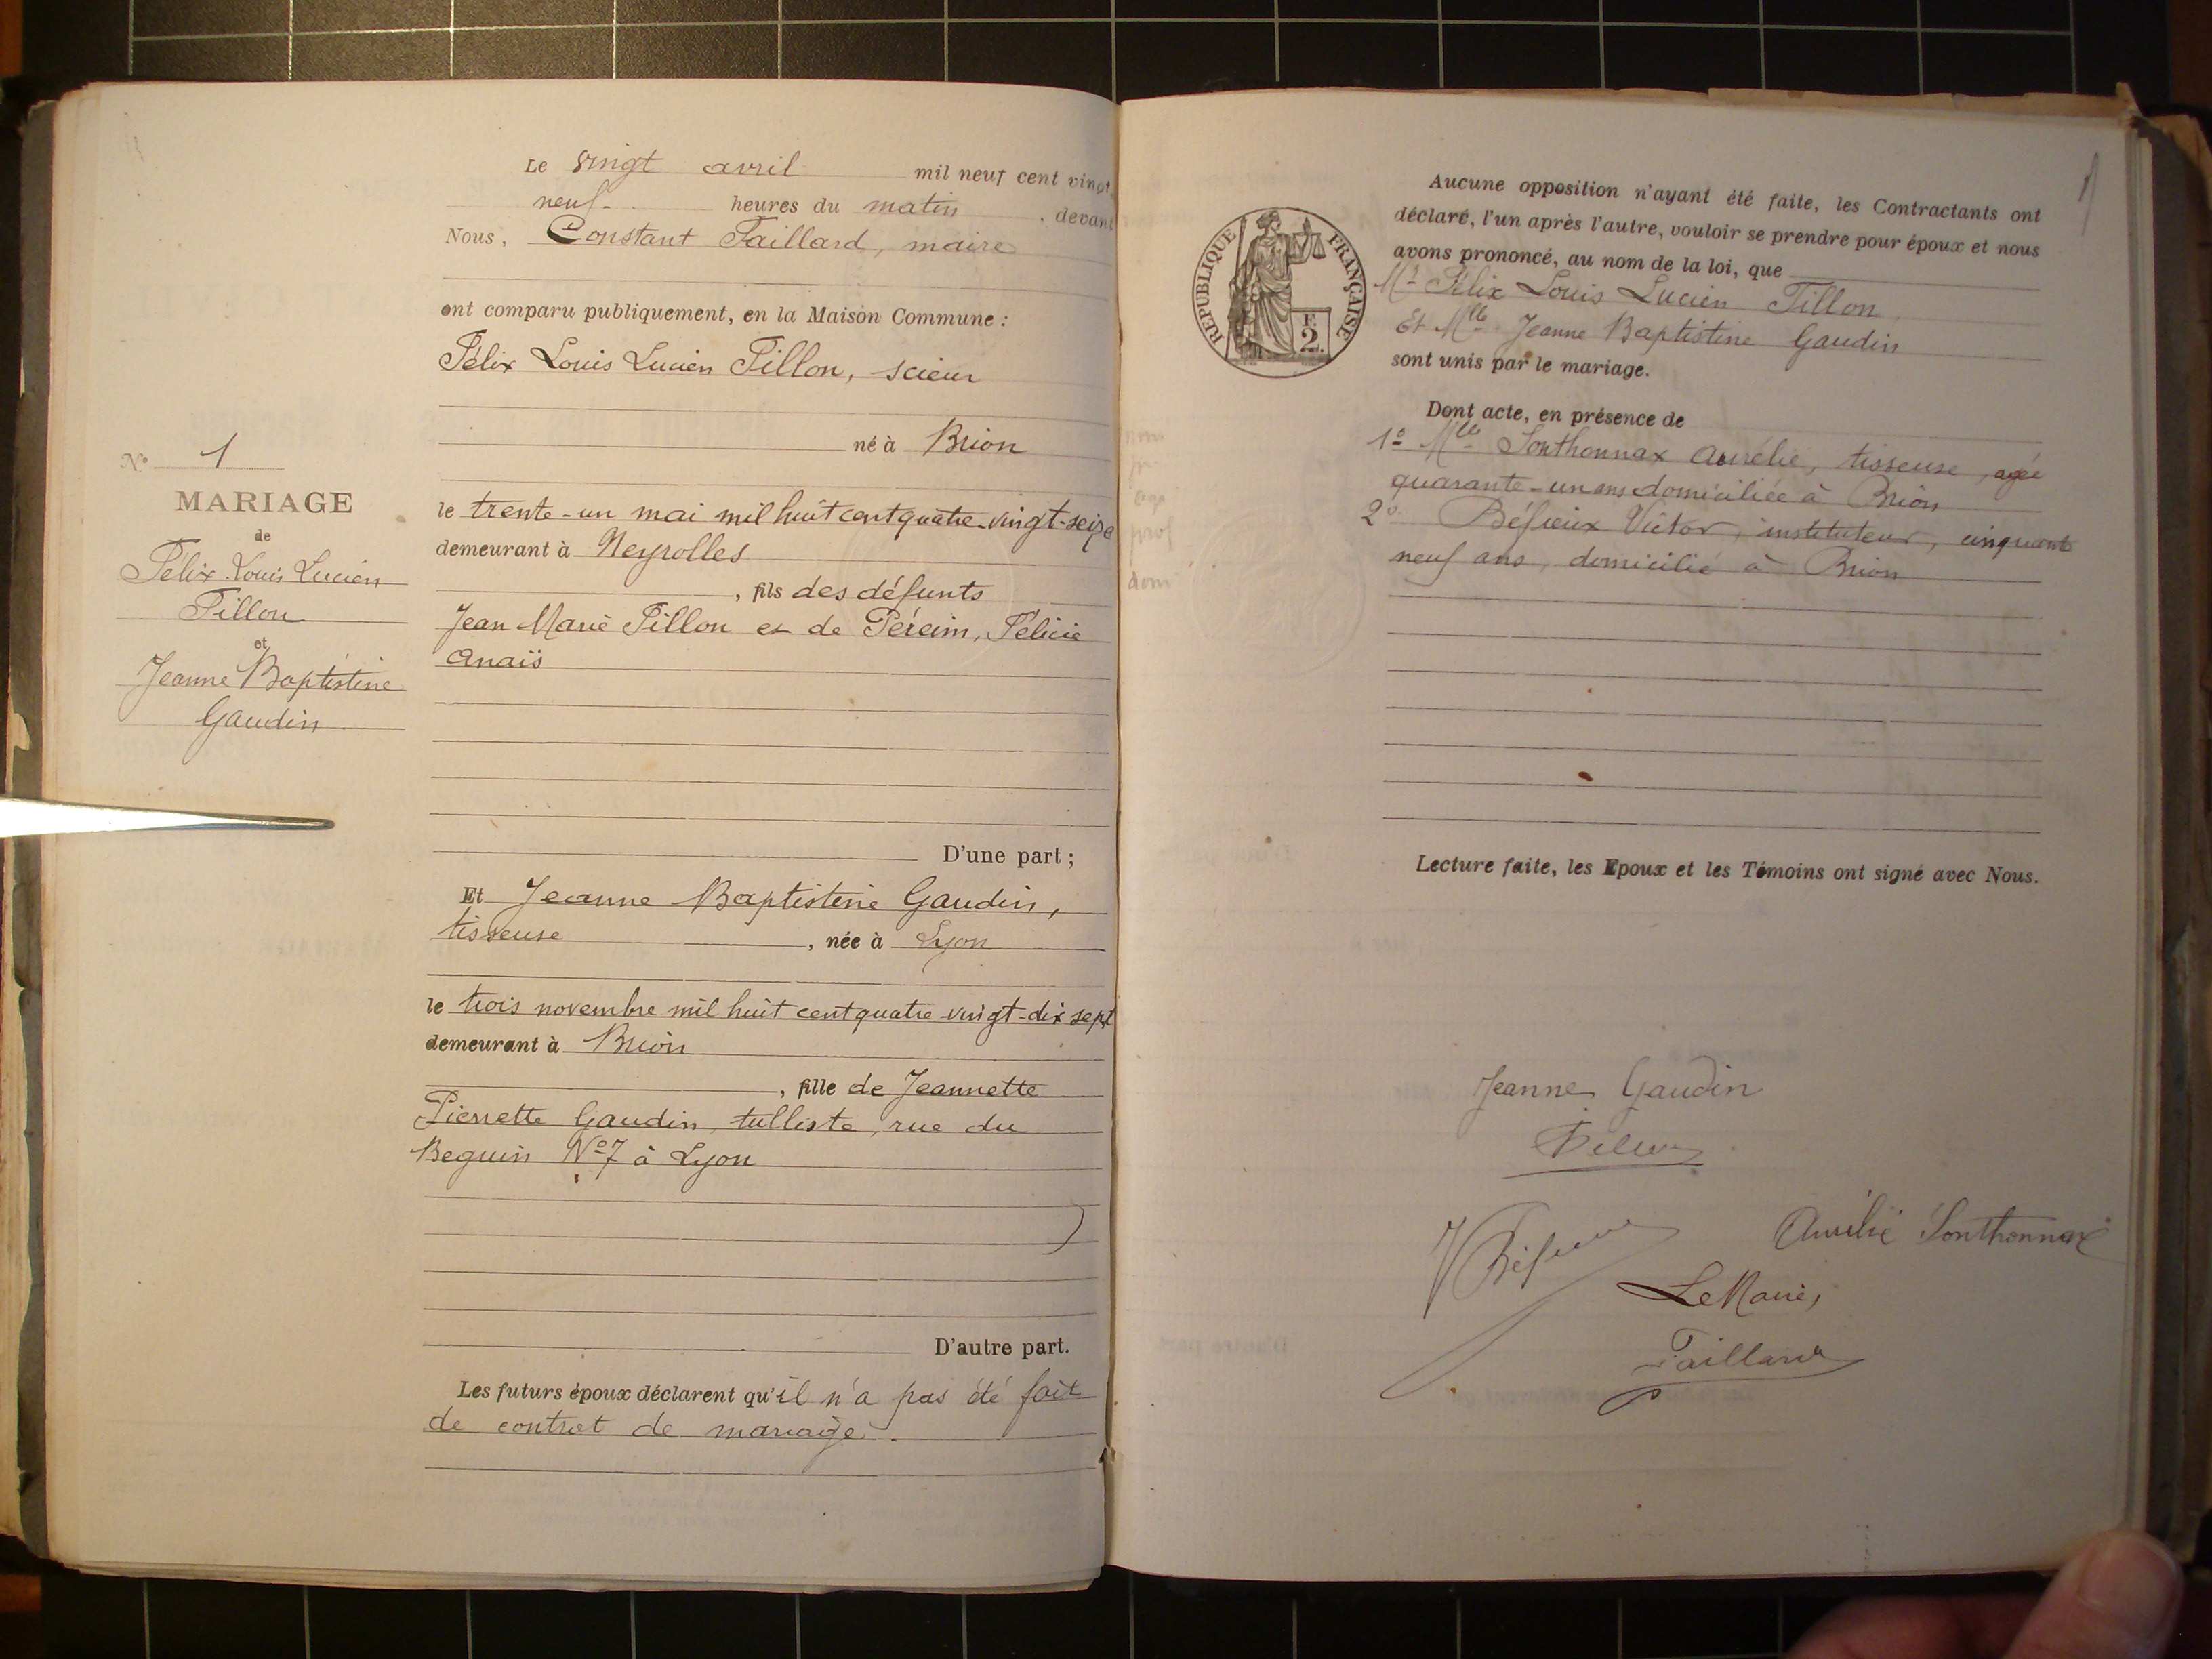 Le vingt avril mil neuf cent vingt
neuf heures du matin, devant
Nous, Constant Taillard, maire
ont comparu publiquement, en la Maison Commune :
Félix Louis Lucien Tillon, scieur
né à Brion
le trente-un mai mil huit cent quatre-vingt-seize
demeurant à Neyrolles
, fils des défunts
Jean Marie Tillon et de Péreim, Félicie
Anaïs
D'une part ;
Et Jeanne Baptistine Gaudin,
tisseuse, née à Lyon
le trois novembre mil huit cent quatre-vingt-dix sept
demeurant à Brion
, fille de Jeannette
Pierrette Gaudin, tulliste, rue du
Beguin No 7 à Lyon
D'autre part.
Les futurs époux déclarent qu'il n'a pas été fait
de contrat de mariage.
No 1
MARIAGE
de
Félix Louis Lucien
Tillon
et
Jeanne Baptistine
Gaudin
RÉPUBLIQUE FRANÇAISE
F.
2
Aucune opposition n'ayant été faite, les Contractants ont
déclaré, l'un après l'autre, vouloir se prendre pour époux et nous
avons prononcé, au nom de la loi, que
Mr Félix Louis Lucien Tillon
Et Mlle Jeanne Baptistine Gaudin
sont unis par le mariage.
Dont acte, en présence de
1o Mlle Sonthonnax Aurélie, tisseuse, agée
quarante-un ans domiciliée à Brion
2o Béfieux Victor, instituteur, cinquante
neuf ans, domicilié à Brion
Lecture faite, les Epoux et les Témoins ont signé avec Nous.
Jeanne Gaudin
Aurélie Sonthonnax
Le Maire,
Taillard